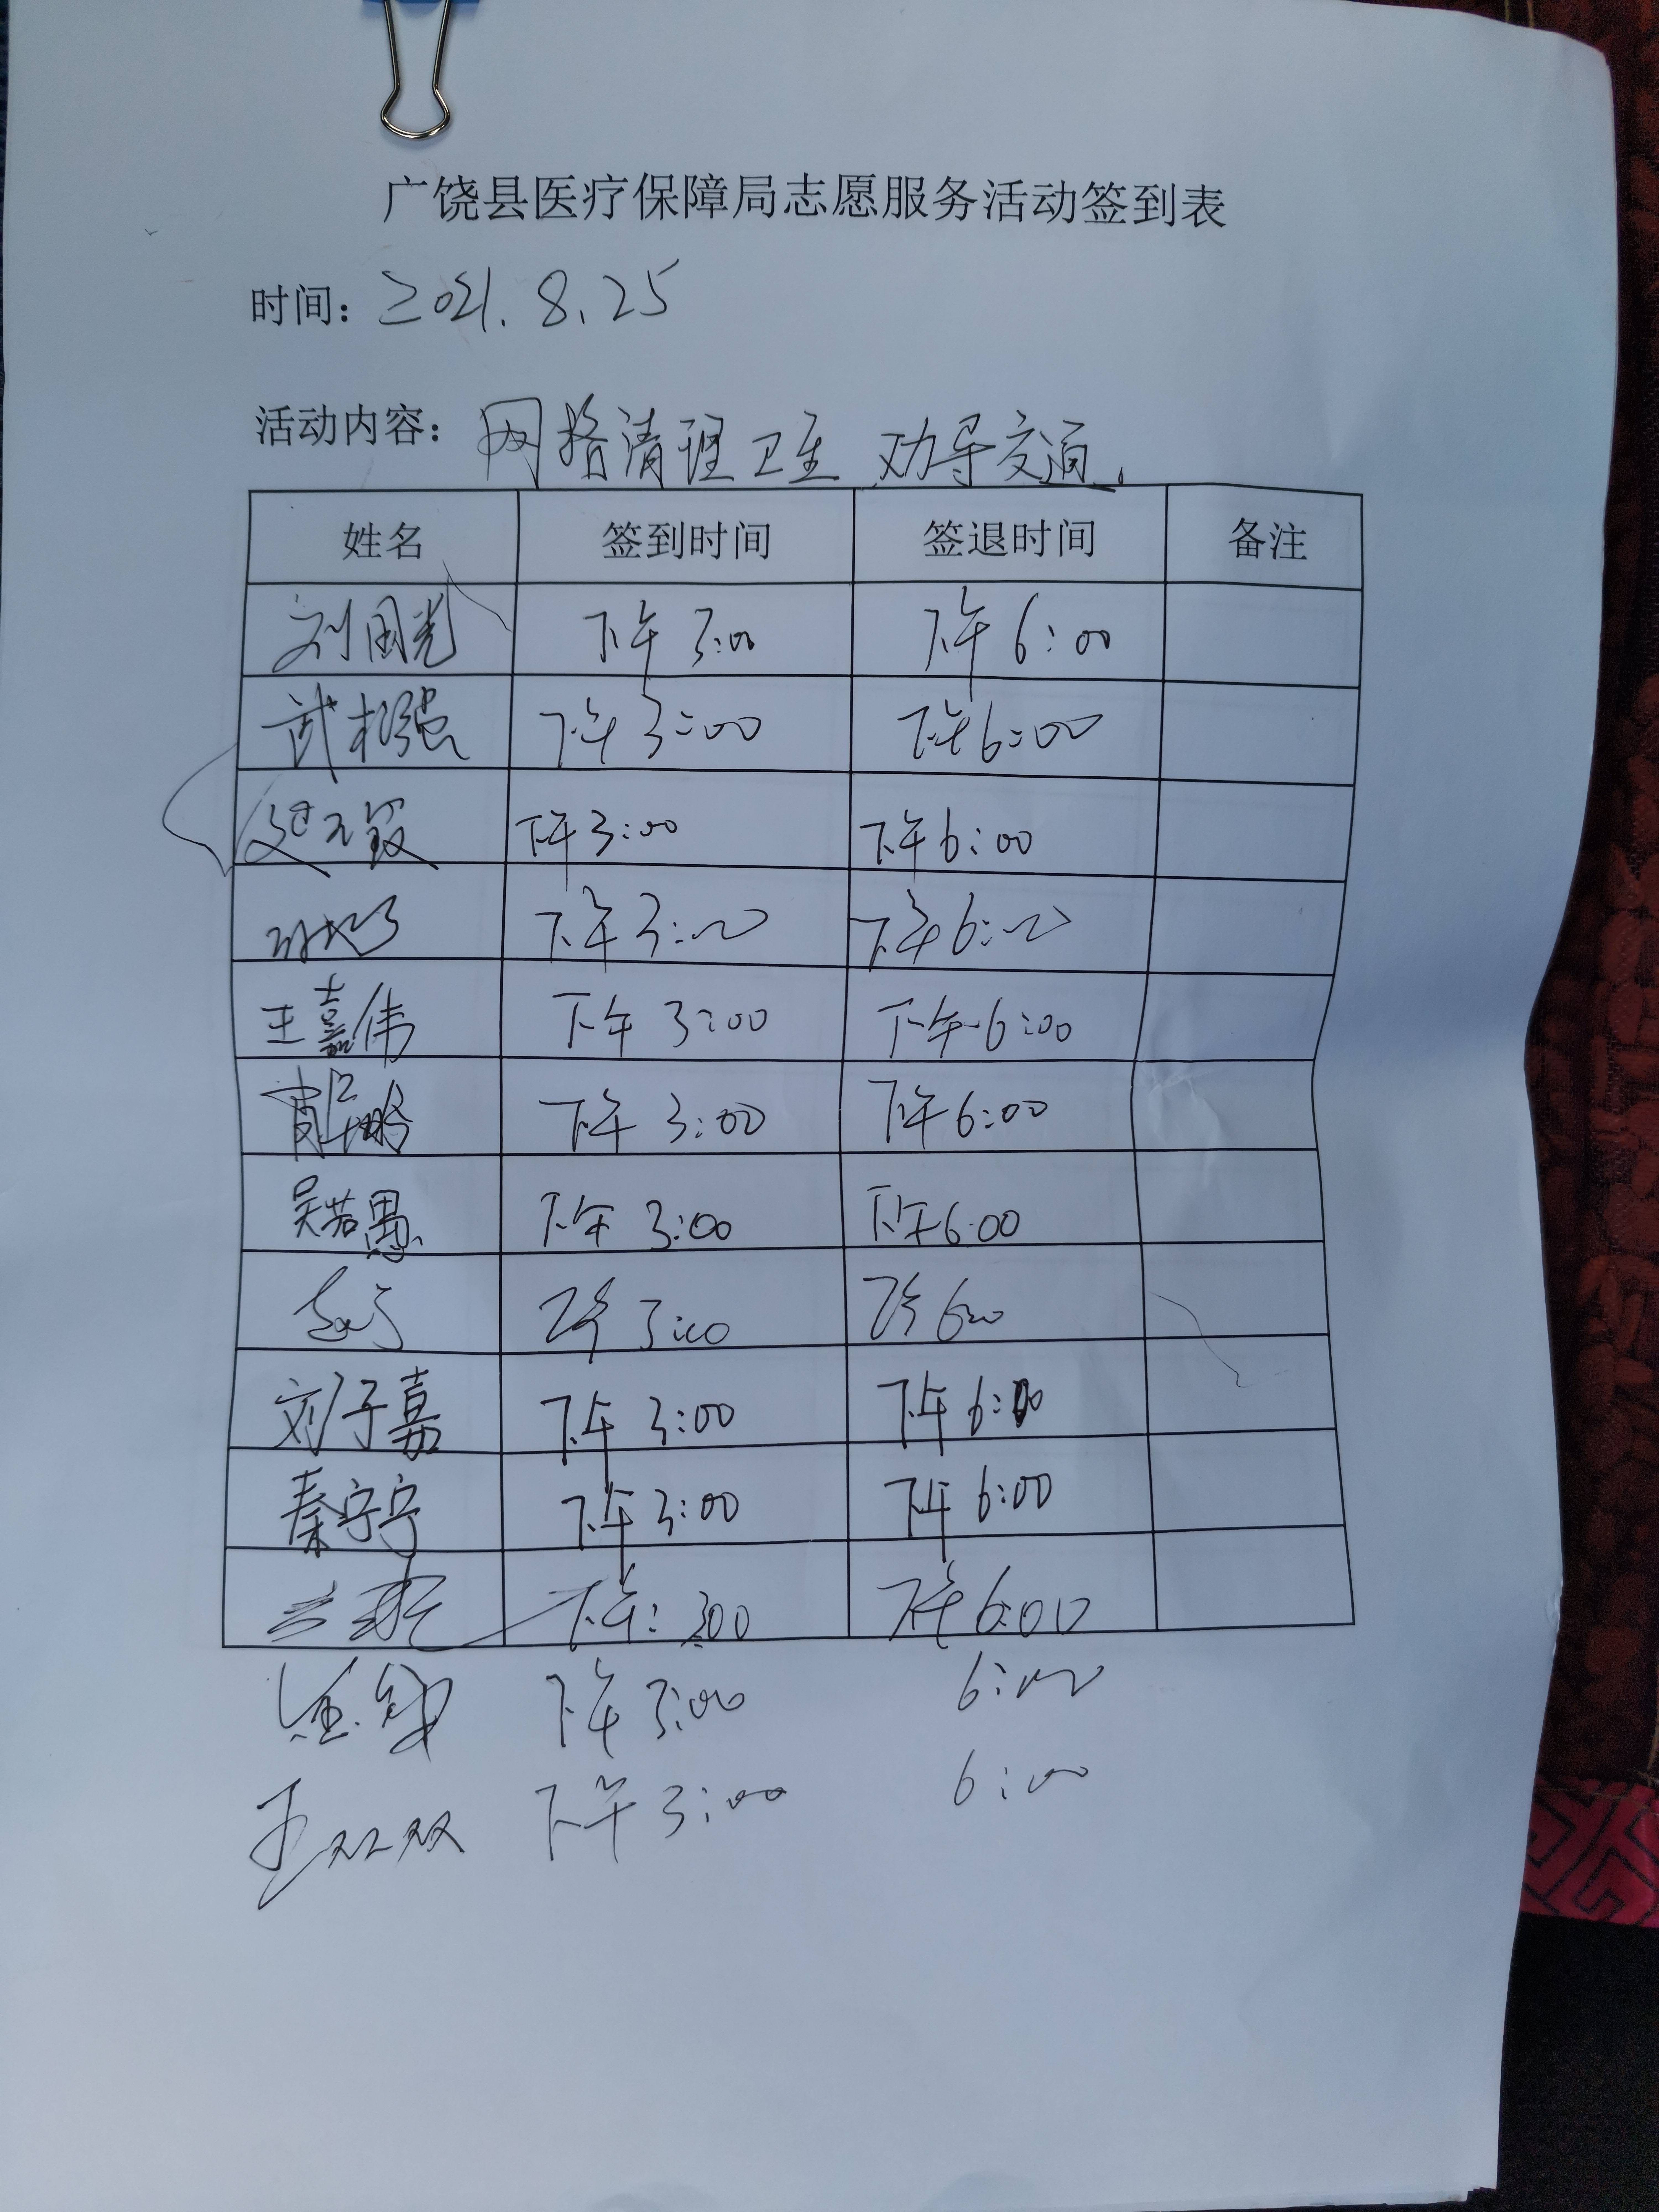 广饶县医疗保障局志愿服务活动签到表
时间：2021.8.25
活动内容：网格清理卫生 劝导交通。
姓名 签到时间 签退时间 备注
刘国光 下午3:00 下午6:00
武松强 下午3:00 下午6:00
下午3:00 下午6:00
下午3:00 下午6:00
王嘉伟 下午3:00 下午6:00
下午3:00 下午6:00
吴若愚 下午3:00 下午6:00
下午3:00 下午6:00
刘子嘉 下午3:00 下午6:00
秦宁宁 下午3:00 下午6:00
下午:300 下午6:00
下午3:00 6:00
王双双 下午3:00 6:00